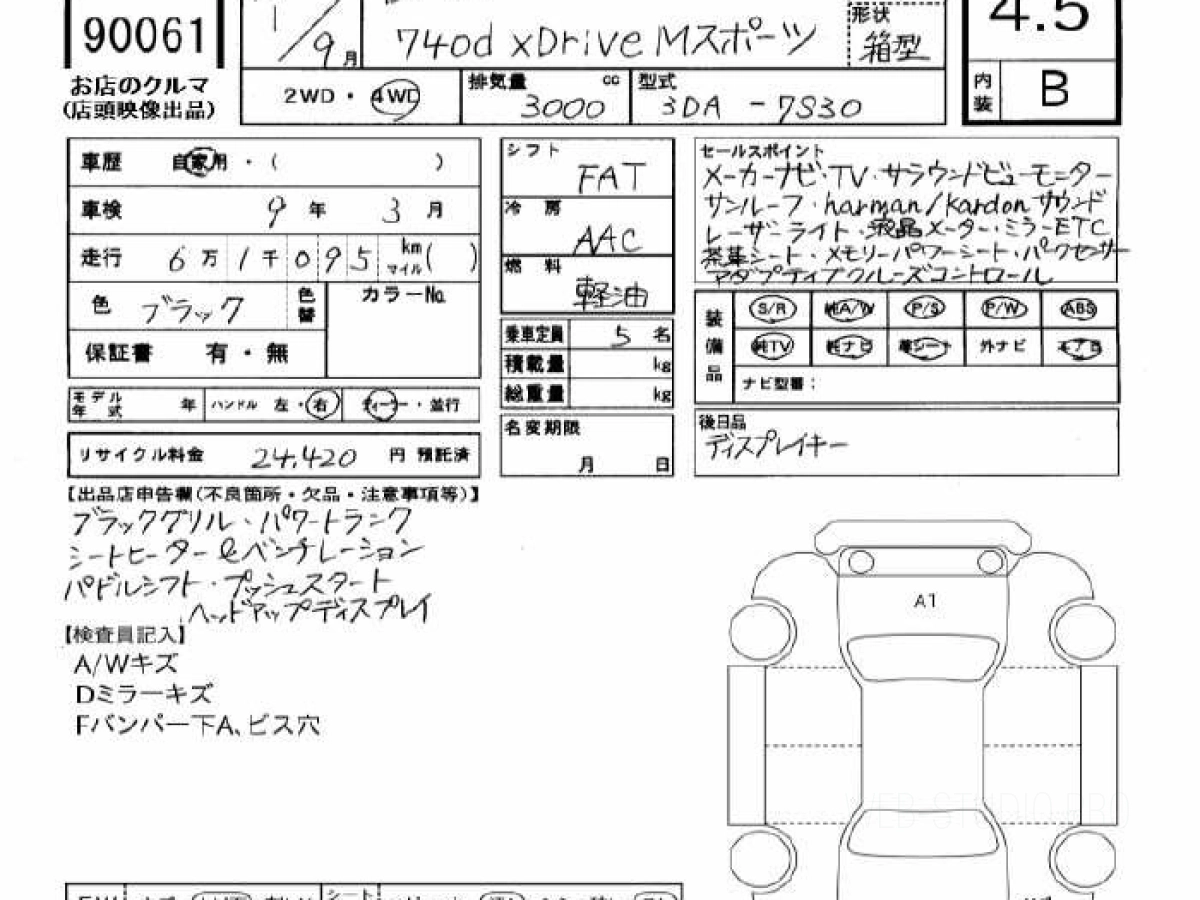 90061
お店のクルマ
(店頭映像出品)
1/9月
740d xDrive Mスポーツ
形状
箱型
2WD・4WD
排気量 cc
3000
型式
3DA-7S30
4.5
内装 B
車歴 自家用・( )
車検 9年 3月
走行 6万1千095 km マイル( )
色 ブラック 色替
カラーNo.
保証書 有・無
モデル年式 年 ハンドル 左・右 ディーラー・並行
リサイクル料金 24,420 円 預託済
シフト
FAT
冷房
AAC
燃料
軽油
乗車定員 5 名
積載量 kg
総重量 kg
名変期限
月 日
セールスポイント
メーカーナビ・TV・サラウンドビューモニター
サンルーフ・harman/kardonサウンド
レーザーライト・液晶メーター・ミラーETC
茶革シート・メモリーパワーシート・パークセンサー
アダプティブクルーズコントロール
装備品
S/R 純A/W P/S P/W ABS
純TV 純ナビ 革シート 外ナビ エアB
ナビ型番:
後日品
ディスプレイキー
【出品店申告欄(不良箇所・欠品・注意事項等)】
ブラックグリル・パワートランク
シートヒーター&ベンチレーション
パドルシフト・プッシュスタート
ヘッドアップディスプレイ
【検査員記入】
A/Wキズ
Dミラーキズ
Fバンパー下A、ビス穴
A1
WEB-STUDIO.PRO
シート